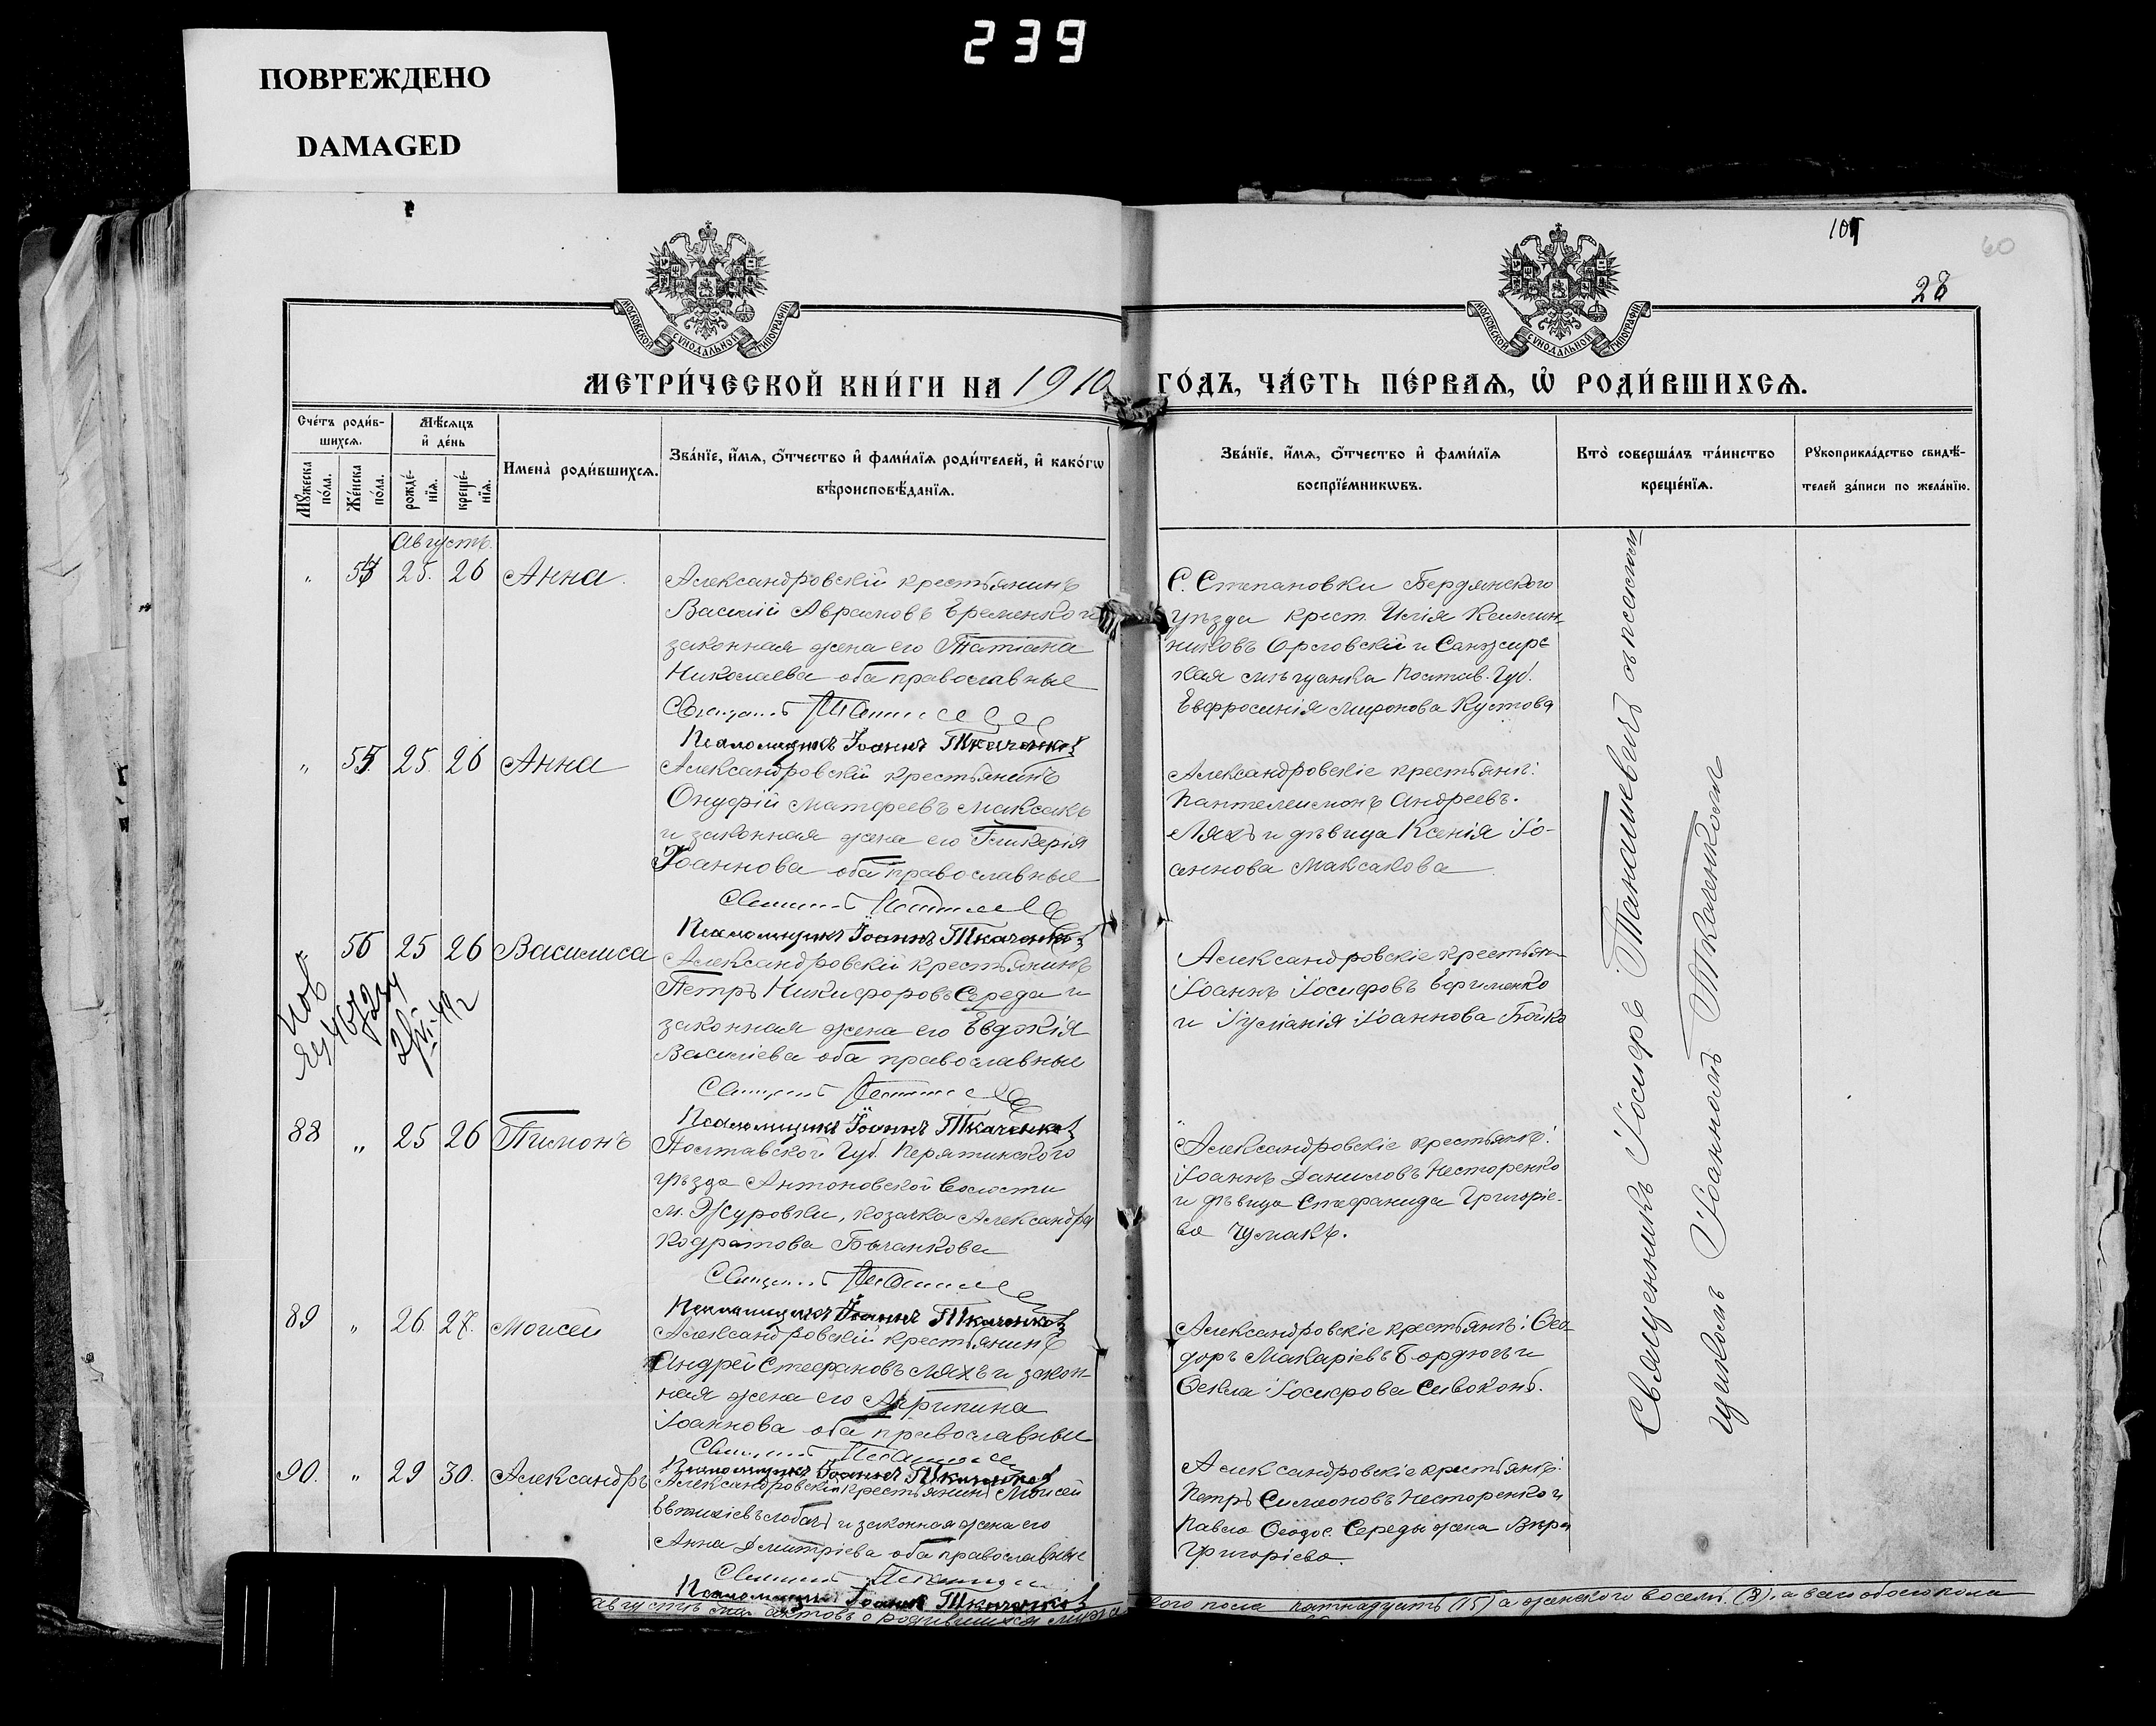 239
ПОВРЕЖДЕНО
DAMAGED
60
28
МОСКОВСКОЙ СѴНОДАЛЬНОЙ ТИПОГРАФІИ
МОСКОВСКОЙ СѴНОДАЛЬНОЙ ТИПОГРАФІИ
МЕТРИ́ЧЕСКОЙ КНИ́ГИ НА 1910 ГО́ДЪ, ЧА́СТЬ ПЕ́РВАѦ, Ѽ РОДИ́ВШИХСѦ.
Счéтъ роди́в-
шихсѧ.
Мѣсѧцъ
и҆ де́нь
Мꙋ́жеска
по́ла.
Же́нска
по́ла.
рожде́-
нїѧ.
креще́-
нїѧ.
Имена̀ роди́вшихсѧ.
Зва́нїе, и҆́мѧ, ѻ҆́тчество и҆ фами́лїѧ роди́телей, и҆ како́гѡ
вѣроисповѣ́данїѧ.
Зва́нїе, и҆́мѧ, ѻ҆́тчество и҆ фами́лїѧ
воспрїе́мникѡвъ.
Кто̀ соверша́лъ та́инство
креще́нїѧ.
Рꙋкоприкла́дство свидѣ́-
телей за́писи по жела́нїю.
Августъ.
" 25. 26 Анна.
Александровскій крестьянинъ
Василій Аврамовъ Еременко и
законная жена его Татіана
Николаева оба православные
Псаломщикъ Іоаннъ Ткаченко
С. Степановки Бердянского
уѣзда крест. Илія
Орловскій и
кая Полтав. Губ.
Евфросинія Миронова Кустова
" 55 25. 26 Анна
Александровскій крестьянинъ
Онуфрій Матфеевъ Максакъ
и законная жена его Гликерія
Іоаннова оба православные
Псаломщикъ Іоаннъ Ткаченко
Александровскіе крестьяне:
Пантелеимонъ Андреевъ.
Ляхъ и дѣвица Ксенія Іо-
аннова Максакова
" 56 25 26 Василиса
Александровскій крестьянинъ
Петръ Никифоровъ Середа и
законная жена его Евдокія
Василіева оба православные
Псаломщикъ Іоаннъ Ткаченко
Александровскіе крестьян
Іоаннъ Іосифовъ Ефименко
и Іуліанія Іоаннова Бойко
88 " 25 26 Тимонъ
Полтавской Губ. Пирятинского
уѣзда Антоновской волости
м. Журовки, козачка Александра
Кодратова Бычанкова
Псаломщикъ Іоаннъ Ткаченко
Александровскіе крестьяне:
Іоаннъ Даниловъ Несторенко
и дѣвица Стефанида Григоріе-
ва Чумакъ.
89 " 26. 27. Моисей
Александровскій крестьянинъ
Андрей Стефановъ Ляхъ и закон-
ная жена его Агрипина
Іоаннова оба православные
Псаломщикъ Іоаннъ Ткаченко
Александровскіе крестьяне: Ѳео-
доръ Макаріевъ Бордюгъ и
Ѳекла Іосифова Сивоконь.
90. " 29 30. Александръ
Александровскій крестьянинъ Моисей
Евтихіевъ Лобачъ и законная жена его
Анна Димитріева оба православные
Псаломщикъ Іоаннъ Ткаченко
Александровскіе крестьяне:
Петръ Симеоновъ Несторенко и
Павла Ѳеодос. Середы жена Вѣра
Григоріева.
Священникъ Іосифъ Танашевичъ съ псалом
щикомъ Іоанномъ Ткаченкомъ
актовъ о родившихся пола пятнадцать (15) а женского восемь (8), а всего обоего пола